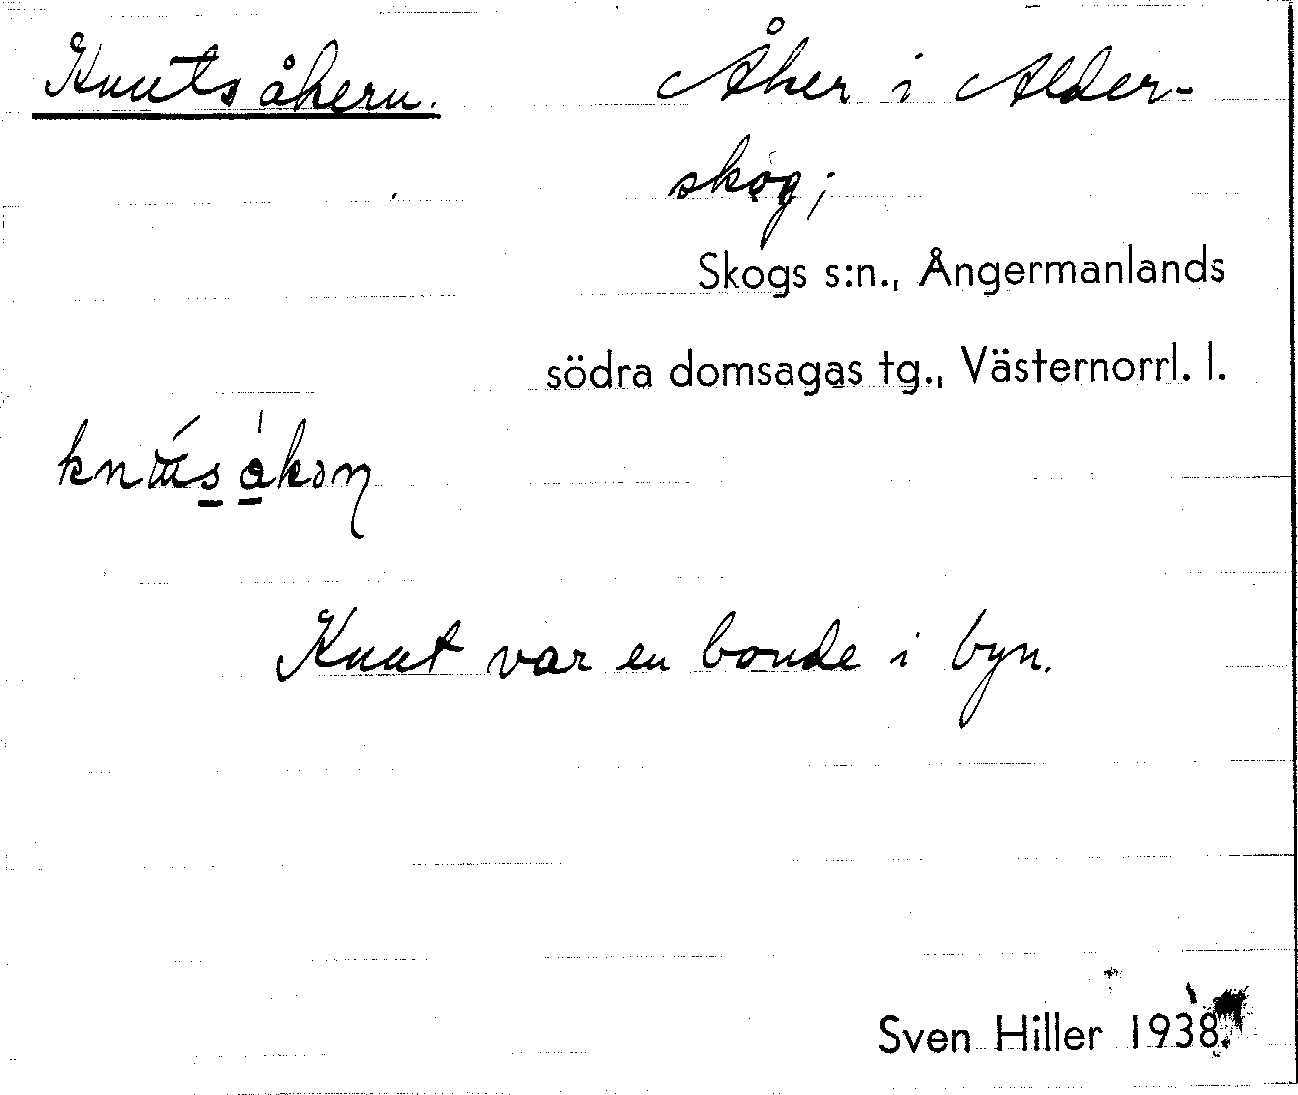 Knutsåkern. Åker i Alder-
skog;
Skogs s:n., Ångermanlands
södra domsagas tg., Västernorrl. l.
Knut var en bonde i byn.
Sven Hiller 1938.